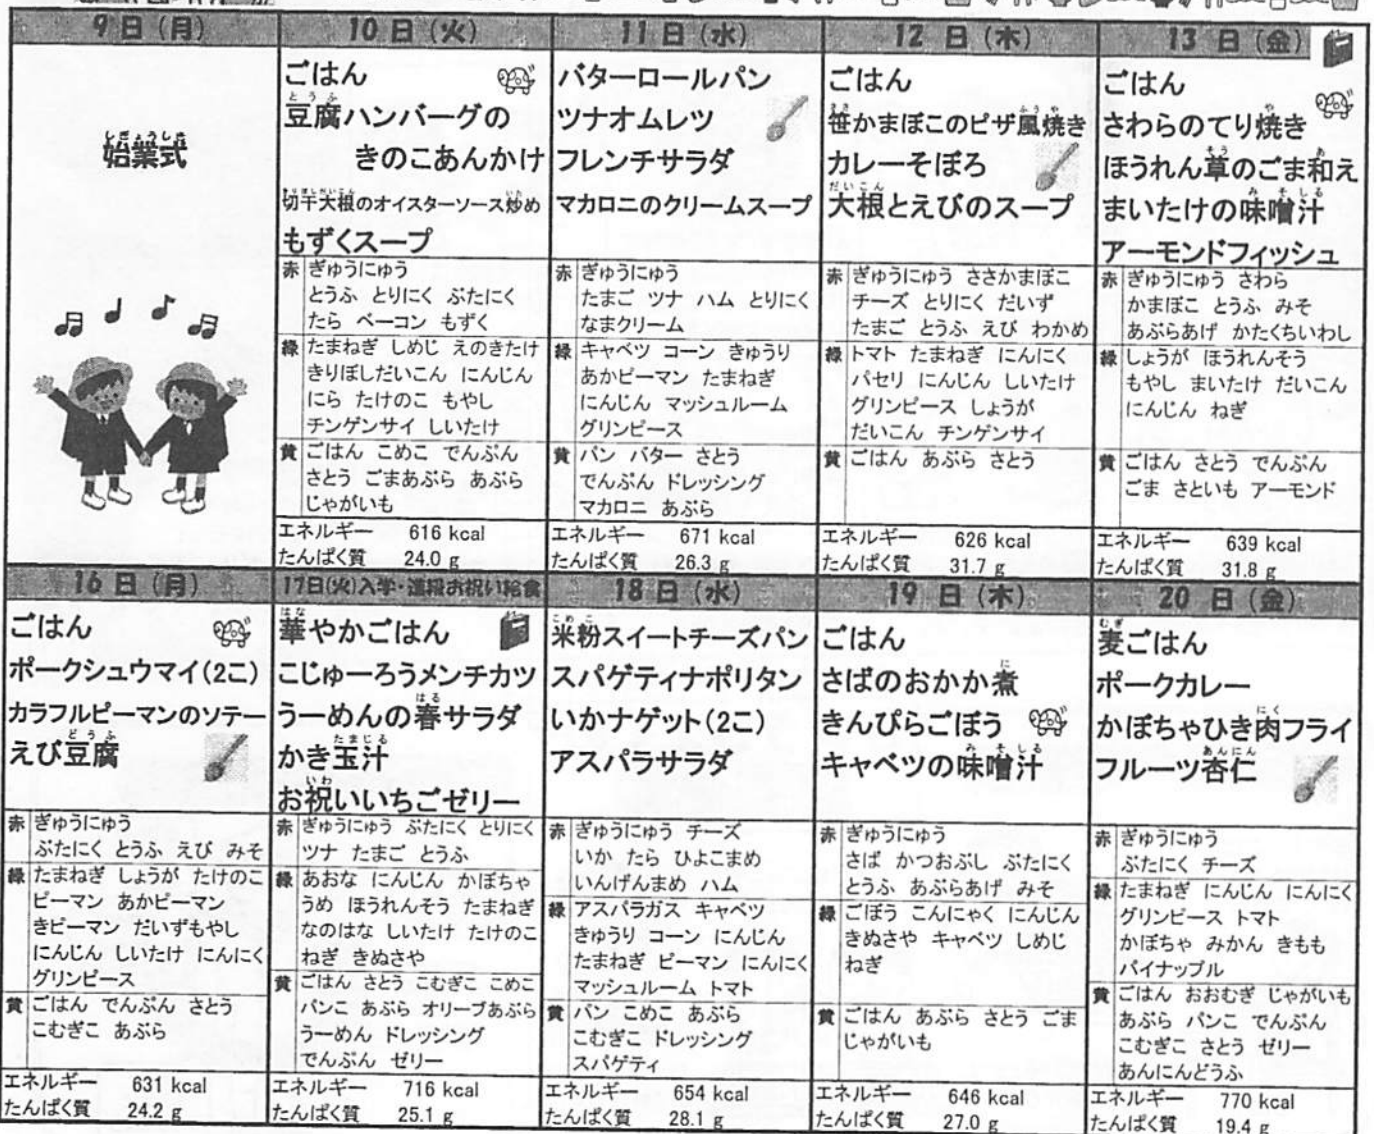 9日(月)
始業式
しぎょうしき
10日(火)
ごはん
豆腐ハンバーグの
とうふ
きのこあんかけ
切干大根のオイスターソース炒め
きりぼしだいこん いた
もずくスープ
赤 ぎゅうにゅう
とうふ とりにく ぶたにく
たら ベーコン もずく
緑 たまねぎ しめじ えのきたけ
きりぼしだいこん にんじん
にら たけのこ もやし
チンゲンサイ しいたけ
黄 ごはん こめこ でんぷん
さとう ごまあぶら あぶら
じゃがいも
エネルギー 616 kcal
たんぱく質 24.0 g
11日(水)
バターロールパン
ツナオムレツ
フレンチサラダ
マカロニのクリームスープ
赤 ぎゅうにゅう
たまご ツナ ハム とりにく
なまクリーム
緑 キャベツ コーン きゅうり
あかピーマン たまねぎ
にんじん マッシュルーム
グリンピース
黄 パン バター さとう
でんぷん ドレッシング
マカロニ あぶら
エネルギー 671 kcal
たんぱく質 26.3 g
12日(木)
ごはん
笹かまぼこのピザ風焼き
ささ ふうや
カレーそぼろ
大根とえびのスープ
だいこん
赤 ぎゅうにゅう ささかまぼこ
チーズ とりにく だいず
たまご とうふ えび わかめ
緑 トマト たまねぎ にんにく
パセリ にんじん しいたけ
グリンピース しょうが
だいこん チンゲンサイ
黄 ごはん あぶら さとう
エネルギー 626 kcal
たんぱく質 31.7 g
13日(金)
ごはん
さわらのてり焼き
や
ほうれん草のごま和え
そう あ
まいたけの味噌汁
みそしる
アーモンドフィッシュ
赤 ぎゅうにゅう さわら
かまぼこ とうふ みそ
あぶらあげ かたくちいわし
緑 しょうが ほうれんそう
もやし まいたけ だいこん
にんじん ねぎ
黄 ごはん さとう でんぷん
ごま さといも アーモンド
エネルギー 639 kcal
たんぱく質 31.8 g
16日(月)
ごはん
ポークシュウマイ(2こ)
カラフルピーマンのソテー
えび豆腐
とうふ
赤 ぎゅうにゅう
ぶたにく とうふ えび みそ
緑 たまねぎ しょうが たけのこ
ピーマン あかピーマン
きピーマン だいずもやし
にんじん しいたけ にんにく
グリンピース
黄 ごはん でんぷん さとう
こむぎこ あぶら
エネルギー 631 kcal
たんぱく質 24.2 g
17日(火)入学・進級お祝い給食
華やかごはん
はな
こじゅーろうメンチカツ
うーめんの春サラダ
はる
かき玉汁
たまじる
お祝いいちごゼリー
いわ
赤 ぎゅうにゅう ぶたにく とりにく
ツナ たまご とうふ
緑 あおな にんじん かぼちゃ
うめ ほうれんそう たまねぎ
なのはな しいたけ たけのこ
ねぎ きぬさや
黄 ごはん さとう こむぎこ こめこ
パンこ あぶら オリーブあぶら
うーめん ドレッシング
でんぷん ゼリー
エネルギー 716 kcal
たんぱく質 25.1 g
18日(水)
米粉スイートチーズパン
こめこ
スパゲティナポリタン
いかナゲット(2こ)
アスパラサラダ
赤 ぎゅうにゅう チーズ
いか たら ひよこまめ
いんげんまめ ハム
緑 アスパラガス キャベツ
きゅうり コーン にんじん
たまねぎ ピーマン にんにく
マッシュルーム トマト
黄 パン こめこ あぶら
こむぎこ ドレッシング
スパゲティ
エネルギー 654 kcal
たんぱく質 28.1 g
19日(木)
ごはん
さばのおかか煮
に
きんぴらごぼう
キャベツの味噌汁
みそしる
赤 ぎゅうにゅう
さば かつおぶし ぶたにく
とうふ あぶらあげ みそ
緑 ごぼう こんにゃく にんじん
きぬさや キャベツ しめじ
ねぎ
黄 ごはん あぶら さとう ごま
じゃがいも
エネルギー 646 kcal
たんぱく質 27.0 g
20日(金)
麦ごはん
むぎ
ポークカレー
かぼちゃひき肉フライ
にく
フルーツ杏仁
あんにん
赤 ぎゅうにゅう
ぶたにく チーズ
緑 たまねぎ にんじん にんにく
グリンピース トマト
かぼちゃ みかん きもも
パイナップル
黄 ごはん おおむぎ じゃがいも
あぶら パンこ でんぷん
こむぎこ さとう ゼリー
あんにんどうふ
エネルギー 770 kcal
たんぱく質 19.4 g